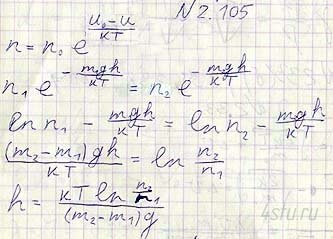 N 2.105
n = n₀ e^{\frac{u₀ - u}{кT}}
n₁ e^{-\frac{m₁gh}{кT}} = n₂ e^{-\frac{m₂gh}{кT}}
ln n₁ - \frac{m₁gh}{кT} = ln n₂ - \frac{m₂gh}{кT}
\frac{(m₂-m₁)gh}{кT} = ln \frac{n₂}{n₁}
h = \frac{кT ln \frac{n₂}{n₁}}{(m₂-m₁)g}
4stu.ru